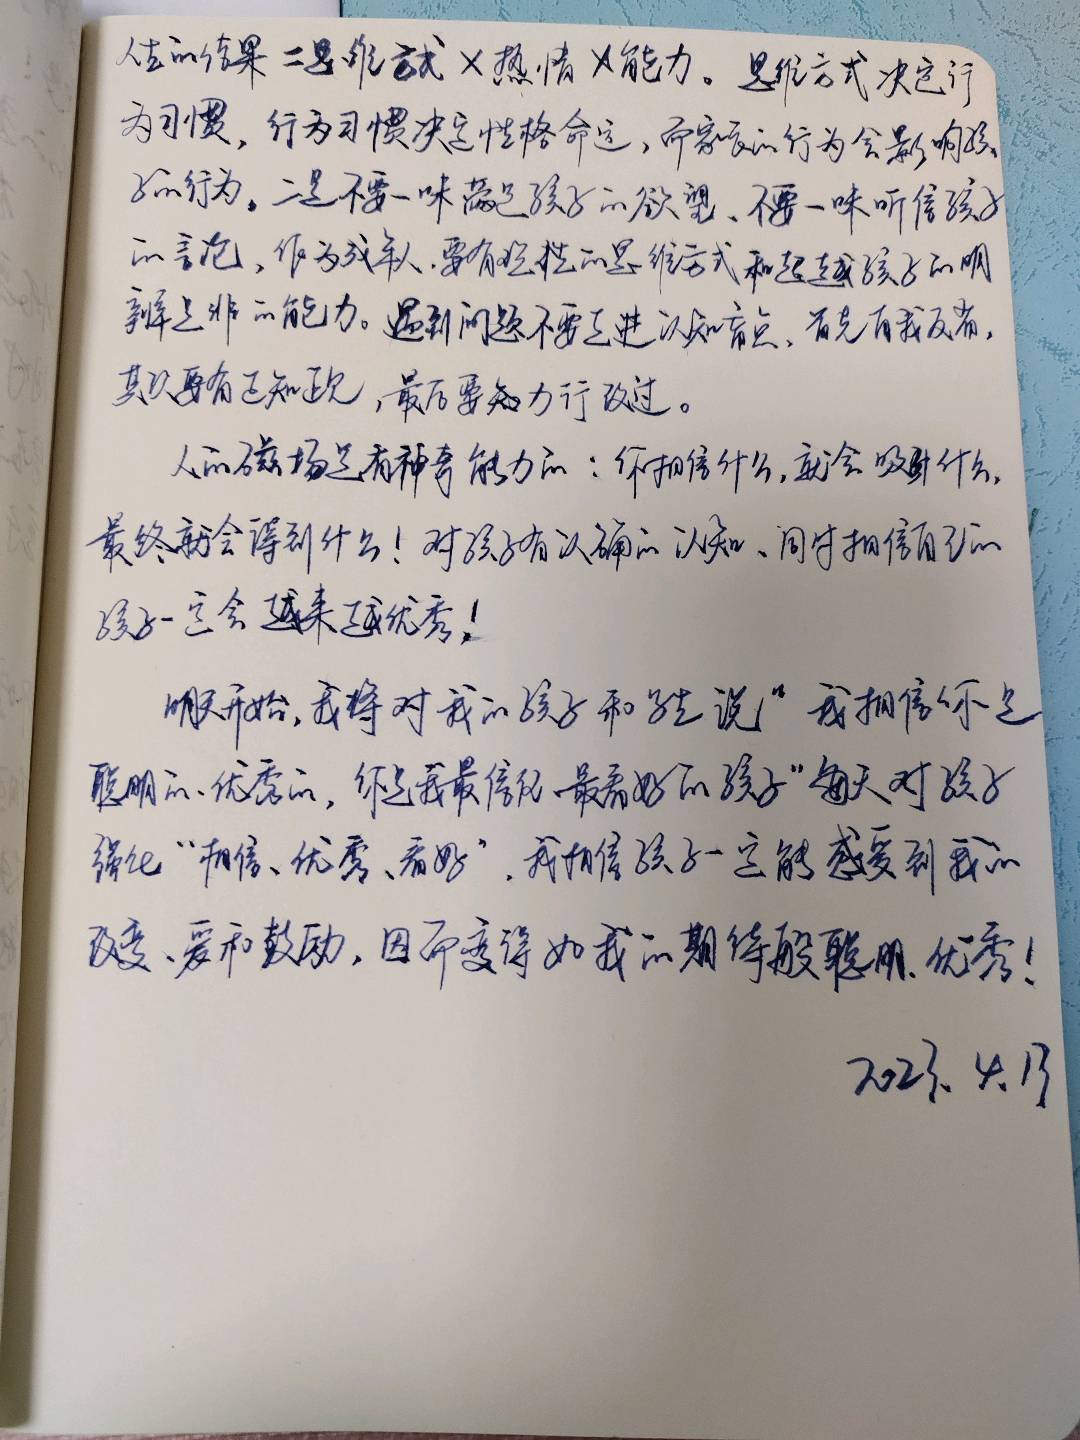 人生的结果=思维方式×热情×能力。思维方式决定行
为习惯，行为习惯决定性格命运，而家长的行为会影响孩
子的行为。二是不要一味满足孩子的欲望、不要一味听信孩子
的言论，作为成年人、要有理性的思维方式和超越孩子的明
辨是非的能力。遇到问题不要走进认知盲点、首先自我反省，
其次要有正知正见，最后要知力行改过。
人的磁场是有神奇能力的：你相信什么，就会吸引什么，
最终就会得到什么！对孩子有正确的认知、同时相信自己的
孩子一定会越来越优秀！
明天开始，我将对我的孩子和学生说"我相信你是
聪明的、优秀的，你是我最信任、最看好的孩子"每天对孩子
强化"相信、优秀、看好"，我相信孩子一定能感受到我的
改变、爱和鼓励，因而变得如我的期待般聪明、优秀！
2023.4.13